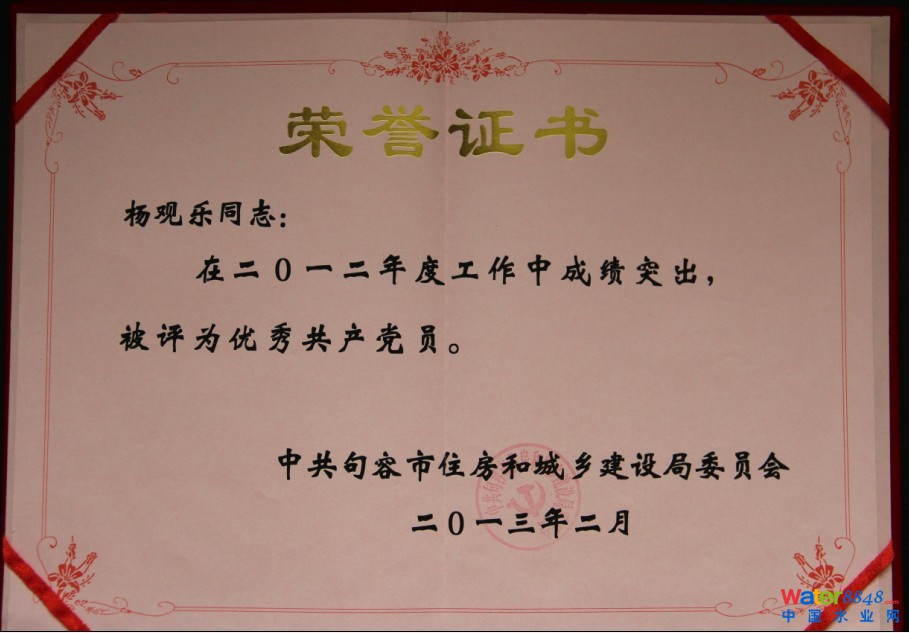 荣誉证书
杨观乐同志：
在二〇一二年度工作中成绩突出，
被评为优秀共产党员。
中共句容市住房和城乡建设局委员会
二〇一三年二月
water8848.com
中国水业网